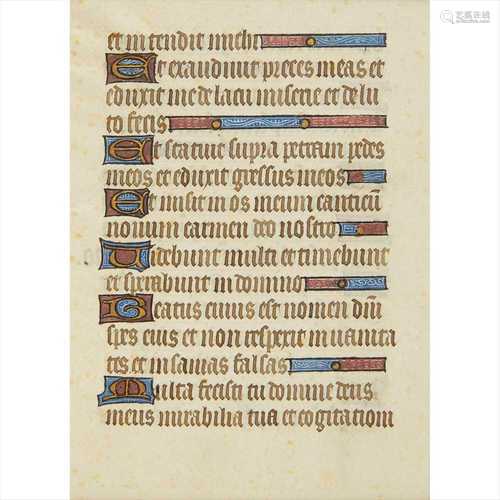 et intendit michi
Et exaudivit preces meas et
eduxit me de lacu miserie et de lu
to fecis
Et statuit supra petram pedes
meos et eduxit gressus meos
Et misit in os meum canticū
novum carmen deo nostro
Videbunt multi et timebunt
et sperabunt in domino
Beatus cuius est nomen dn̄i
spes eius et non respexit in vanita
tes et insanias falsas
Multa fecisti tu domine deus
meus mirabilia tua et cogitationi